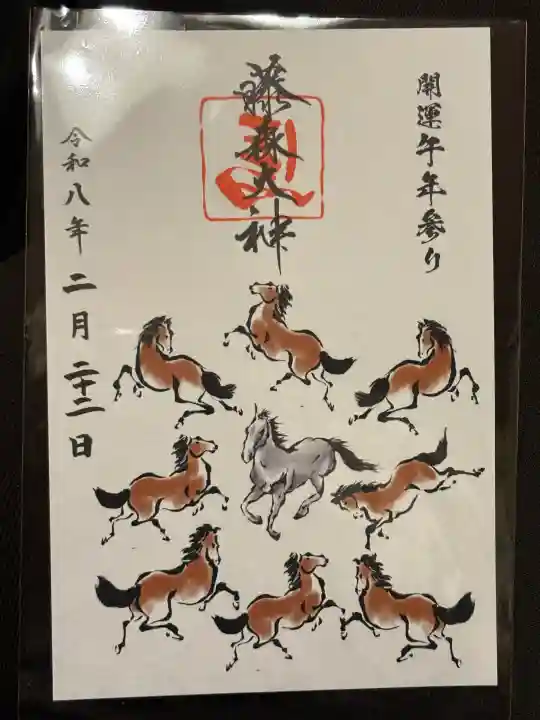 開運午年参り
藤森大神
令和八年二月二十二日